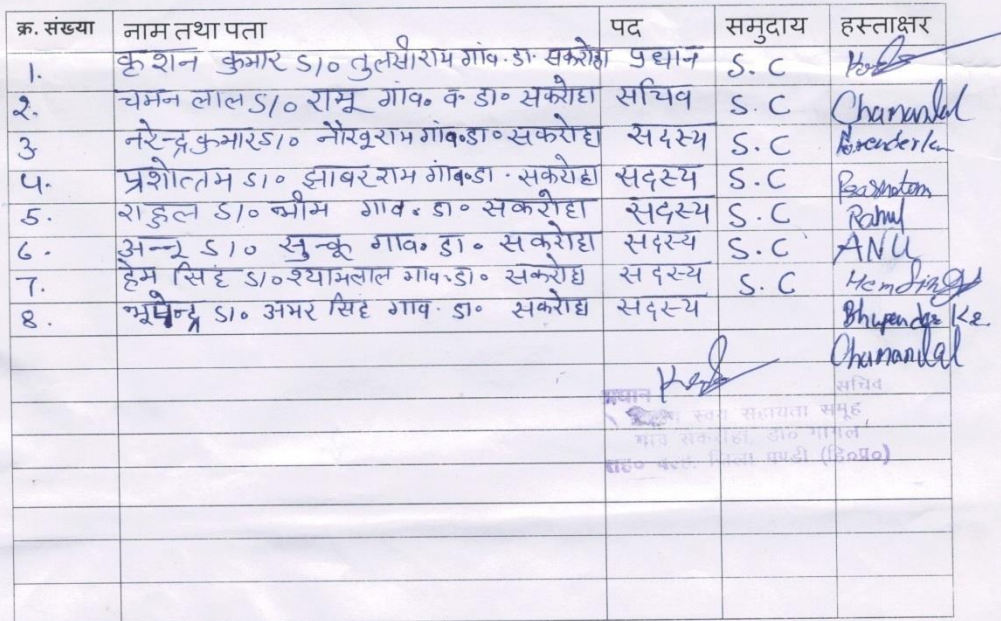 क्र. संख्या नाम तथा पता पद समुदाय हस्ताक्षर
1. कृशन कुमार S/० तुलसीराम गांव. डा. सकरोहा प्रधान S. C
2. चमन लाल S/० रामू गाँव० व डा० सकरोहा सचिव S. C Chamanlal
3 नरेन्द्र कुमार S/० गांव.डा० सकरोहा सदस्य S. C
4. प्रशोत्तम S/० झाबर राम गाँव०डा. सकरोहा सदस्य S. C
5. राहुल S/० भीम गाव. डा० सकरोहा सदस्य S. C Rahul
6. अन्नू S/० सुन्कू गाव० डा० सकरोहा सदस्य S. C ANU
7. हेम सिंह S/० श्यामलाल गांव.डा० सकरोहा सदस्य S. C Hem Singh
8. भूपेन्द्र S/० अमर सिंह गाव. डा० सकरोहा सदस्य
Chamanlal
प्रधान सचिव
स्वयं सहायता समूह
गांव सकरोहा, डा०
जिला मण्डी (हि०प्र०)